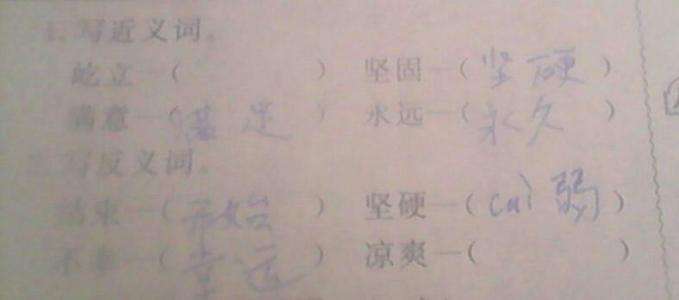 1. 写近义词。
屹立—( ) 坚固—(坚硬)
满意—(满足) 永远—(永久)
写反义词。
结束—(开始) 坚硬—(cuì弱)
不幸—(幸运) 凉爽—( )